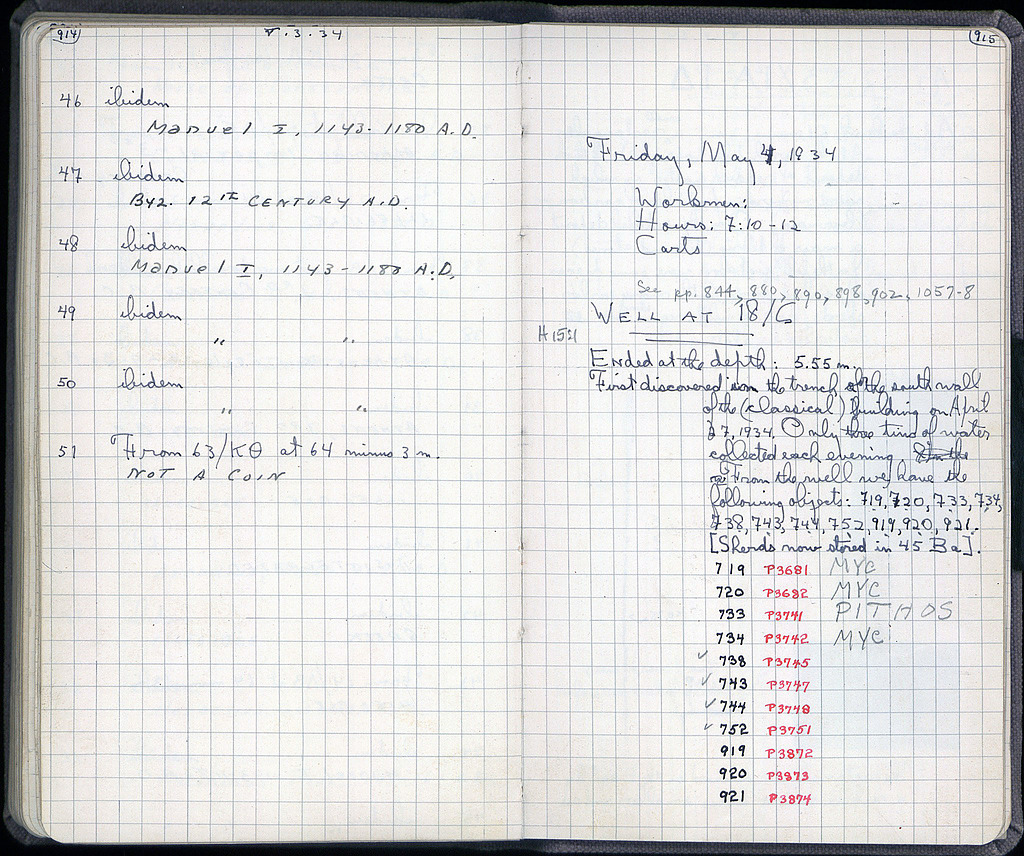 914
V.3.34
46 ibidem
Manuel I, 1143-1180 A.D.
47 ibidem
Byz. 12TH CENTURY A.D.
48 ibidem
Manuel I, 1143-1180 A.D.
49 ibidem
" "
50 ibidem
" "
51 From 63/ΚΘ at 64 minus 3 m.
NOT A COIN
915
Friday, May 4, 1934
Workmen:
Hours: 7:10-12
Carts
See pp. 844, 880, 890, 898, 902, 1057-8
WELL AT 18/
H 15:1
Ended at the depth: 5.55 m.
First discovered in the trench of the south wall
of the (classical) building on April
27, 1934. Only tins of water
collected each evening.
From the well we have the
following objects: 719, 720, 733, 734,
738, 743, 744, 752, 919, 920, 921.
[Sherds now stored in 45 Ba].
719 P3681 MYC
720 P3682 MYC
733 P3741 PITHOS
734 P3742 MYC
✓ 738 P3745
✓ 743 P3747
✓ 744 P3748
✓ 752 P3751
919 P3872
920 P3873
921 P3874